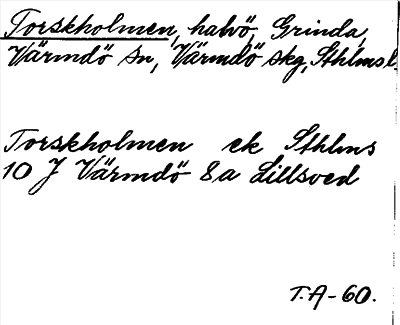 Torskholmen, halvö, Grinda,
Värmdö sn, Värmdö skg, Sthlms l.
Torskholmen ek Sthlms
10 J Värmdö 8a Lillsved
T.A-60.